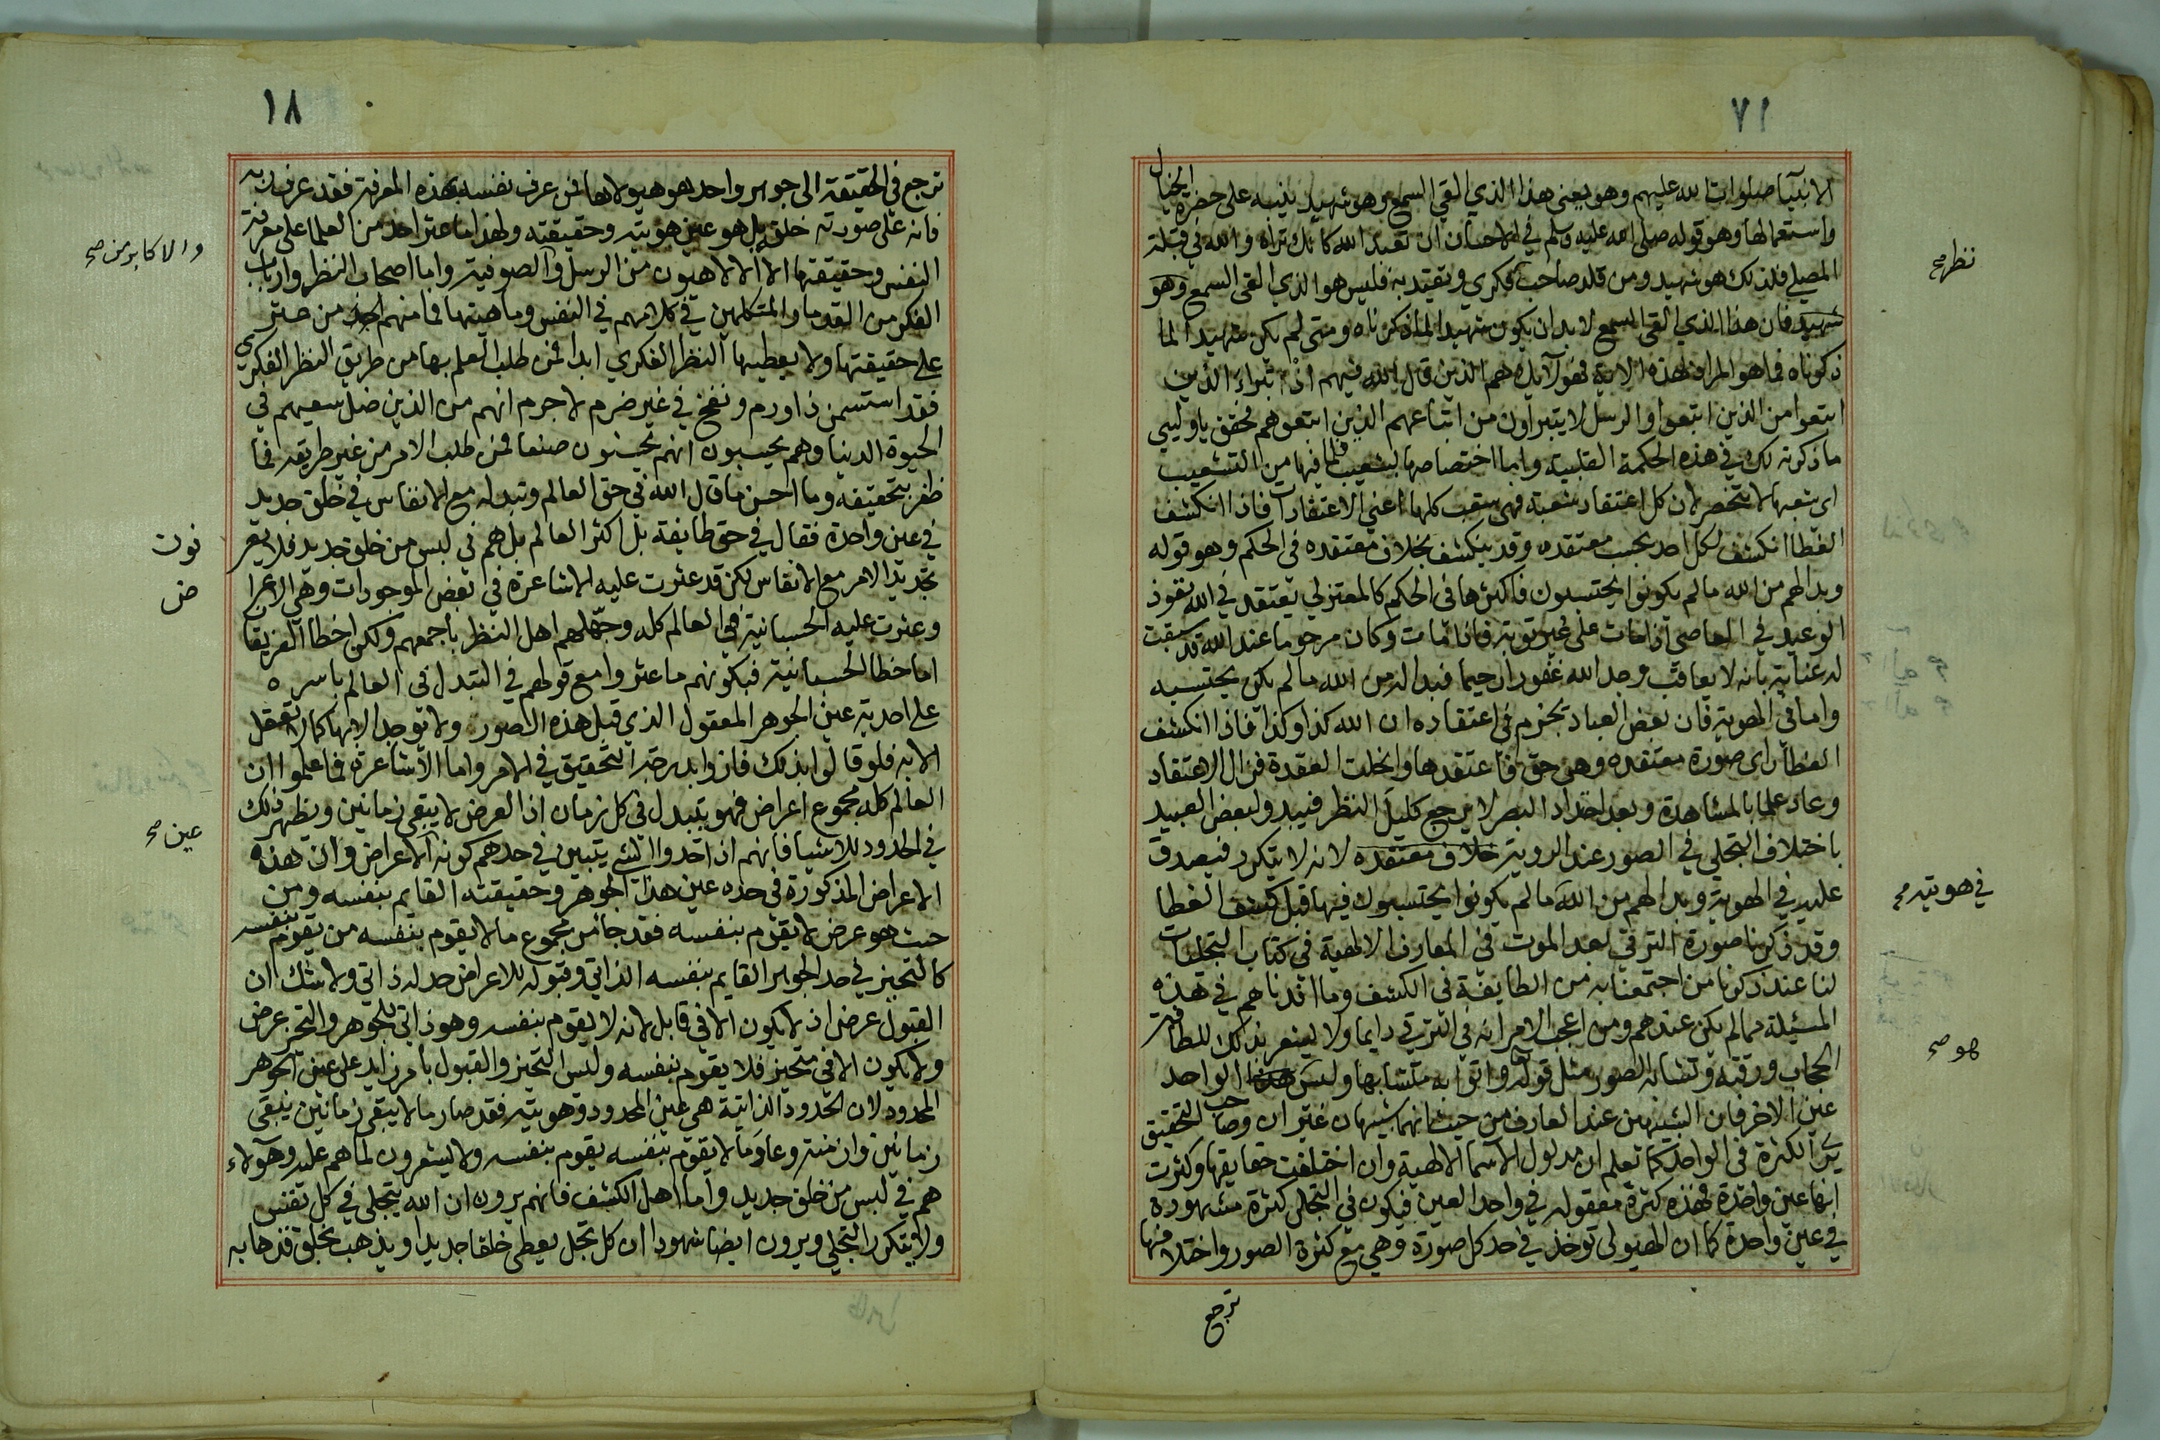 ٧١
الانبيا صلوات الله عليهم وهو يعني هذا الذي القي السمع وهو شهيد ينبه على حضرة الخيال
واستعمالها وهو قوله صلى الله عليه وسلم في الاحسان ان تعبد الله كانك تراه والله في قبلة
المصلي فلذلك هو شهيد ومن قلد صاحب فكري وتقيد به فليس هو الذي القى السمع وهو
شهيد فان هذا الذي القى السمع لا بد ان يكون شهيدا لما ذكرناه ومتى لم يكن شهيدا لما
ذكرناه فما هو المراد بهذه الاية فهولآيك هم الذين قال الله فيهم اذ تبراء الذين
ابتعوا من الذين اتبعوا والرسل لا يتبراون من اتباعهم الذين اتبعوهم فحقق يا وليي
ما ذكرته لك في هذه الحكمة القلبية واما اختصاصها بشعيب فلما فيها من التشعيب
اى شعبها لا تنحصر لان كل اعتقاد شعبة فهي شعب كلها اعني الاعتقادات فاذا انكشف
الغطا انكشف لكل احد بحسب معتقده وقد ينكشف بخلاف معتقده فى الحكم وهو قوله
وبدا لهم من الله ما لم يكونوا يحتسبون فاكثرها فى الحكم كالمعتزلي يعتقد في الله نفوذ
الوعيد في العاصي اذا مات على غير توبة فاذا مات وكان مرحوما عند الله قد سبقت
له عناية بانه لا يعاقب وجد الله غفورا رحيما فبدا له من الله ما لم يكن يحتسبه
واما فى الهوية فان بعض العباد يجزم فى اعتقاده ان الله كذا وكذا فاذا انكشف
الغطا راى صورة معتقده وهى حق فاعتقدها وانحلت العقدة فزال الاعتقاد
وعاد علما بالمشاهدة وبعد احتداد البصر لا يرجع كليل النظر فيبد ولبعض العبيد
باختلاف التجلي في الصور عند الروية خلاف معتقده لانه لا يتكرر فيصدق
عليه في الهوية وبدا لهم من الله ما لم يكونوا يحتسبون فيها قبل كشف الغطا
وقد ذكرنا صورة الترقي بعد الموت فى المعارف الالهية فى كتاب التجليات
لنا عند ذكرنا من اجتمعنا به من الطايفة فى الكشف وما افدناهم في هذه
المسئلة مما لم يكن عندهم ومن اعجب الامر انه فى الترقي دايما ولا يشعر بذلك للطافة
الحجاب ورقته وتشابه الصور مثل قوله واتوا به متشابها وليس الواحد
عين الاخر فان الشبيهين عند العارف من حيث انهما شبيهان غيران وصاحب التحقيق
يرى الكثرة فى الواحد كما تعلم ان مدلول الاسما الالهية وان اختلفت حقايقها وكثرت
انها عين واحدة فهذه كثرة معقولة في واحد العين فيكون فى التجلى كثرة مشهودة
في عين واحدة كما ان الهيولى توخذ في حد كل صورة وهي مع كثرة الصور واختلافها
ترجع
نظر صح
في هويته صح
هو صح
١٨
ترجع في الحقيقة الى جوهر واحد هو هيولاها فمن عرف نفسه بهذه المعرفة فقد عرف ربه
فانه على صورته خلقه بل هو عين هويته وحقيقته ولهذا ما عثر احد من العلما على معرفة
النفس وحقيقتها الا الالاهيون من الرسل والصوفية واما اصحاب النظر وارباب
الفكر من القدما والمتكلمين في كلامهم في النفس وماهيتها فما منهم احد من عثر
على حقيقتها ولا يعطيها النظر الفكري ابدا فمن طلب العلم بها من طريق النظر الفكري
فقد استسمن ذا ورم ونفخ في غير ضرم لا جرم انهم من الذين ضل سعيهم في
الحيوة الدنيا وهم يحسبون انهم يحسنون صنعا فمن طلب الامر من غير طريقه فما
ظفر بتحقيقه وما احسن ما قال الله في حق العالم وتبدله مع الانفاس في خلق جديد
في عين واحدة فقال في حق طايفة بل اكثر العالم بل هم في لبس من خلق جديد فلا يعر
تجديد الامر مع الانفاس لكن قد عثرت عليه الاشاعرة في بعض الموجودات وهي الاعرا
وعثرت عليه الحسبانية في العالم كله وجهلهم اهل النظر باجمعهم ولكن اخطا الفريقان
اما خطا الحسبانية فبكونهم ما عثروا مع قولهم في التبدل فى العالم باسره
على احدية عين الجوهر المعقول الذي قبل هذه الصور ولا توجد الا بها كما لا تعقل
الا به فلو قالوا بذلك فازوا بدرجة التحقيق في الامر واما الاشاعرة فما علموا ان
العالم كله مجموع اعراض فهو يتبدل في كل زمان اذا العرض لا يبقى زمانين ويظهر ذلك
في الحدود للاشيا فانهم اذا حدوا الشي يتبين في حدهم كونه الاعراض وان هذه
الاعراض المذكورة في حده عين هذا الجوهر وحقيقته القايم بنفسه ومن
حيث هو عرض لا يقوم بنفسه فقد جا من مجموع ما لا يقوم بنفسه من يقوم بنفسه
كالتحيز في حد الجوهر القايم بنفسه الذاتي وقبوله للاعراض حد له ذاتي ولا شك ان
القبول عرض اذ لا يكون الا في قابل لانه لا يقوم بنفسه وهو ذاتي للجوهر والتحيز عرض
ولا يكون الا في متحيز فلا يقوم بنفسه وليس التحيز والقبول بامر زايد على عين الجوهر
المحدود لان الحدود الذاتية هي عين المحدود وهويته فقد صار ما لا يبقى زمانين يبقى
زمانين وازمنة وعاد ما لا يقوم بنفسه يقوم بنفسه ولا يشعرون لما هم عليه وهولاء
هم في لبس من خلق جديد واما اهل الكشف فانهم يرون ان الله يتجلى في كل نفس
ولا يتكرر التجلي ويرون ايضا شهودا ان كل تجل يعطى خلقا جديدا ويذهب بخلق فذهابه
والاكابر من صح
نون
ض
عين صح